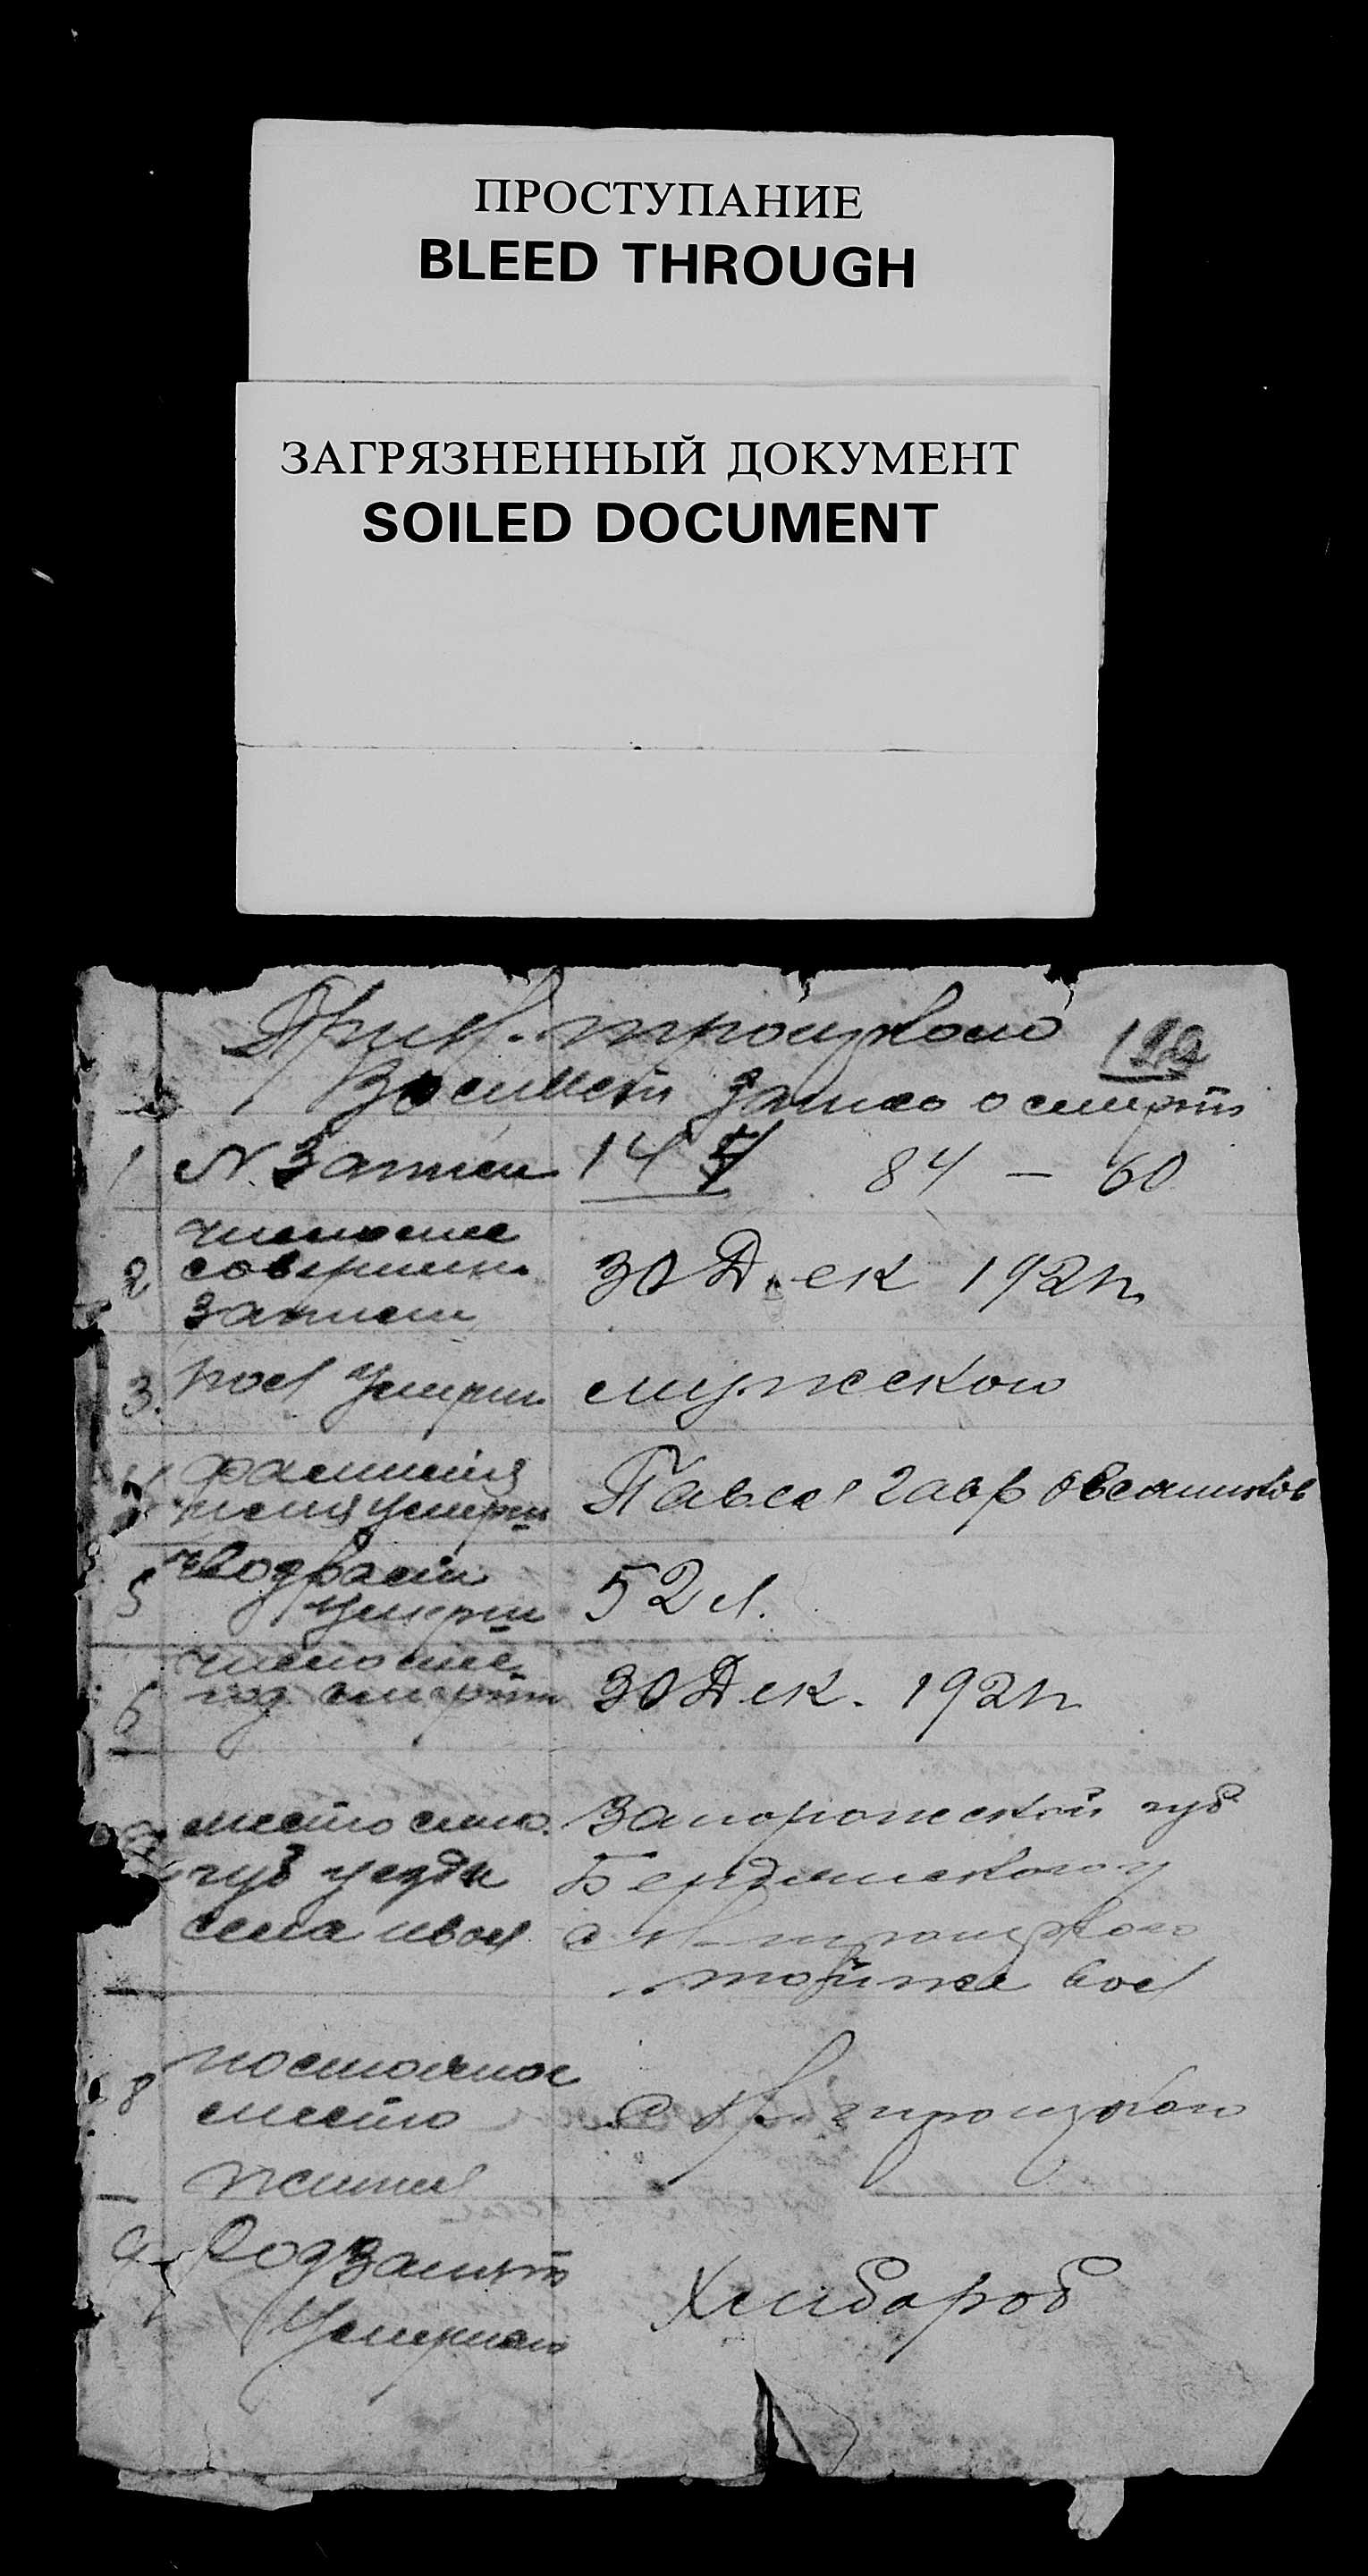 ПРОСТУПАНИЕ
BLEED THROUGH
ЗАГРЯЗНЕННЫЙ ДОКУМЕНТ
SOILED DOCUMENT
троицкого
о смерти
1 N. Запис 14 84 – 60
2 число мес
соверш
записи
30 Дек 192
3. пол умерш. мужского
фамилия
имя умерш
Павел Гавр Овсянников
5 возраст
умерш
52 л.
6 число мес.
год смерти
30 Дек. 192
место смер.
губ уезда
села и вол
Запорожской губ
Бердянского у
троицкого
той же вол
8 постоянное
место
жития
с троицкого
9 Род занят
умершего
Хлибороб